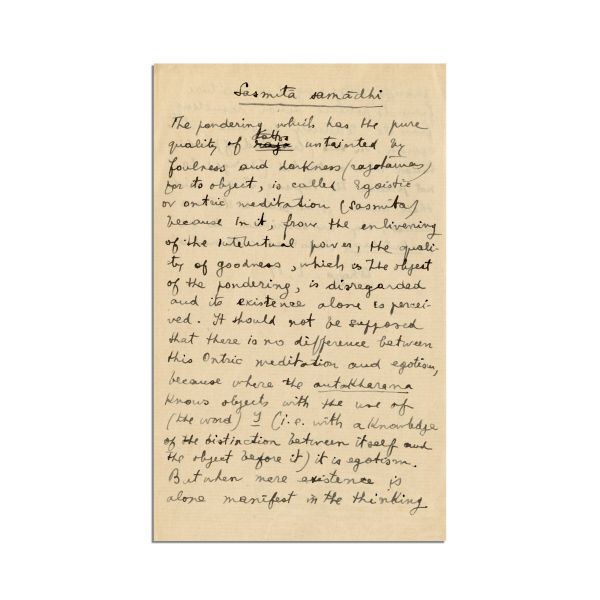 Sasmita samādhi
The pondering which has the pure
quality of sattva untainted by
foulness and darkness (rajotamas)
for its object, is called Egoistic
or ontric meditation (Sasmita)
because in it, from the enlivening
of the Intelectual power, the quali-
ty of goodness, which is the object
of the pondering, is disregarded
and its existence alone is percei-
ved. It should not be supposed
that there is no difference between
this Ontric meditation and egotism,
because where the antakharana
knows objects with the use of
(the word) I (i.e. with a knowledge
of the distinction between itself and
the object before it) it is egotism.
But when mere existence is
alone manifest in the thinking